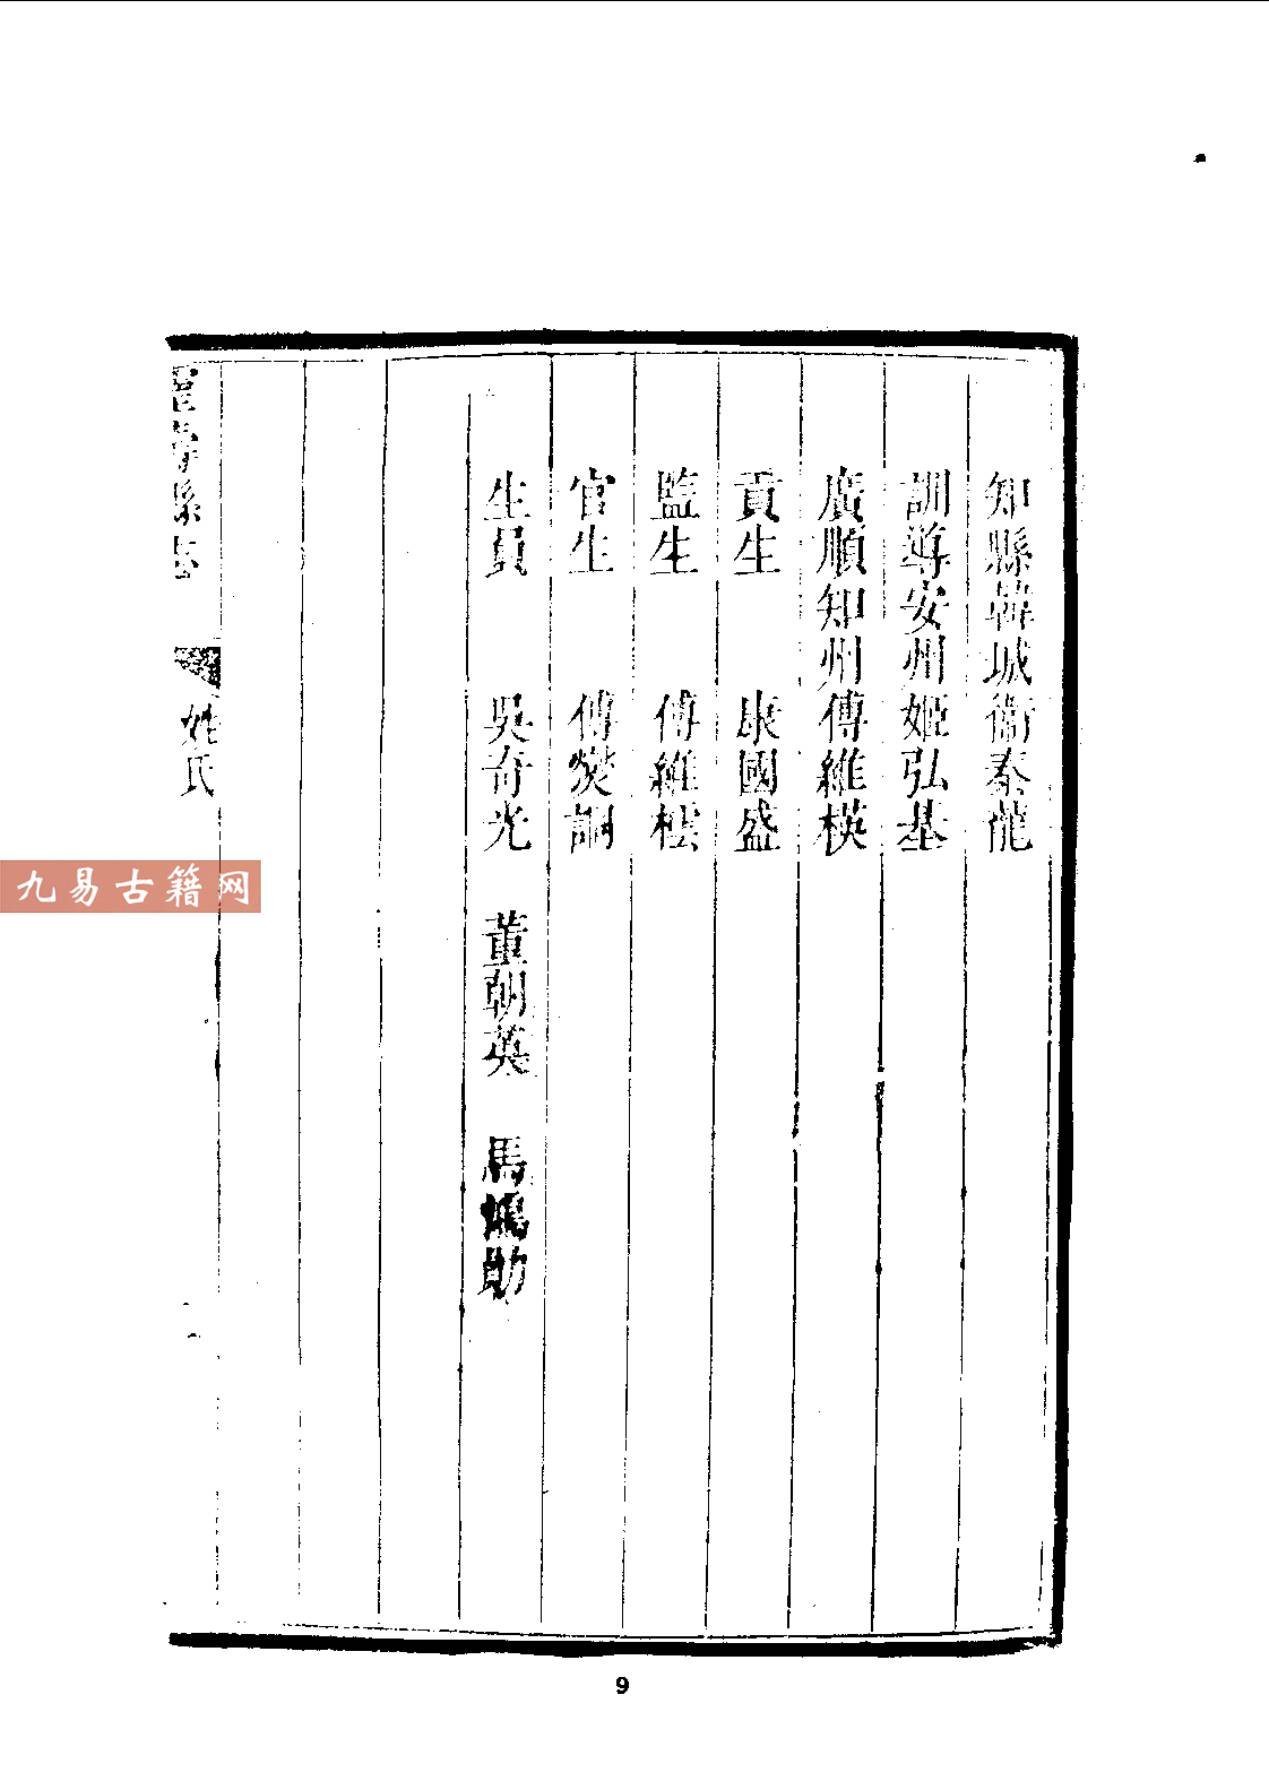 知縣韓城衞秦龍
訓導安州姬弘基
廣順知州傅維楧
貢生　康國盛
監生　傅維枟
官生　傅燮詷
生員　吳奇光　董朝英　馬鳴勛
靈壽縣志　姓氏
九易古籍网
9